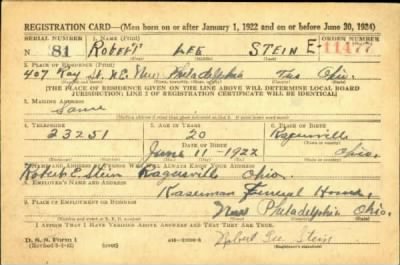 REGISTRATION CARD—(Men born on or after January 1, 1922 and on or before June 30, 1924)
SERIAL NUMBER 1. NAME (Print) ORDER NUMBER
N 81 ROBERT LEE STEIN E-11477
(First) (Middle) (Last)
2. PLACE OF RESIDENCE (Print)
407 Ray St. N.E. New Philadelphia Tus Ohio.
[THE PLACE OF RESIDENCE GIVEN ON THE LINE ABOVE WILL DETERMINE LOCAL BOARD
JURISDICTION; LINE 2 OF REGISTRATION CERTIFICATE WILL BE IDENTICAL]
3. MAILING ADDRESS
Same
4. TELEPHONE 5. AGE IN YEARS 6. PLACE OF BIRTH
33251 20 Ragersville
DATE OF BIRTH
June 11 1922 Ohio.
7. NAME AND ADDRESS OF PERSON WHO WILL ALWAYS KNOW YOUR ADDRESS
Robert E. Stein Ragersville Ohio.
8. EMPLOYER'S NAME AND ADDRESS
Kaserman Funeral Home,
9. PLACE OF EMPLOYMENT OR BUSINESS
New Philadelphia Ohio.
I AFFIRM THAT I HAVE VERIFIED ABOVE ANSWERS AND THAT THEY ARE TRUE.
D. S. S. Form 1
(over)
Robert Lee Stein
(Registrant's signature)